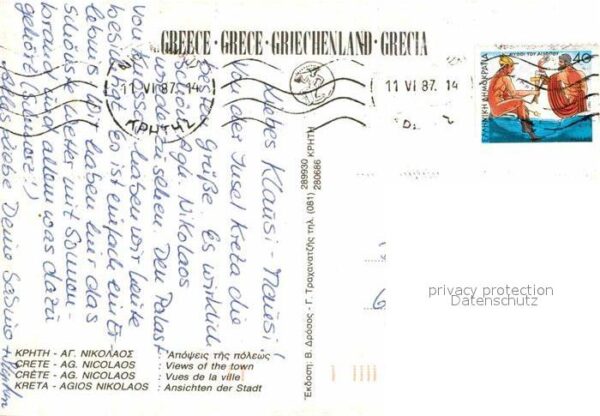 GREECE · GRECE · GRIECHENLAND · GRECIA
ΜΥΘΟΙ ΤΟΥ ΑΙΣΩΠΟΥ
40
ΕΛΛΗΝΙΚΗ ΔΗΜΟΚΡΑΤΙΑ
11 VI 87. 14
11 VI 87. 14
ΚΡΗΤΗΣ
Liebes Klausi-Mausi!
Von der Insel Kreta die
besten Grüße. Es wirklich
schön. Agh. Nikolaos
Den Palast
von Knossos haben wir heute
besichtigt. Es ist einfach ein Er-
lebnis. Wir haben hier das
schönste Wetter mit Sonnen-
brand und allem was dazu
gehört
Alles Liebe Deine Sabine
ΚΡΗΤΗ - ΑΓ. ΝΙΚΟΛΑΟΣ : Ἀπόψεις τῆς πόλεως
CRETE - AG. NICOLAOS : Views of the town
CRÈTE - AG. NICOLAOS : Vues de la ville
KRETA - AGIOS NIKOLAOS : Ansichten der Stadt
Έκδοση: Β. Δρόσος - Γ. Τραχανατζής τηλ. (081) 289930 ΚΡΗΤΗ
280686
privacy protection
Datenschutz